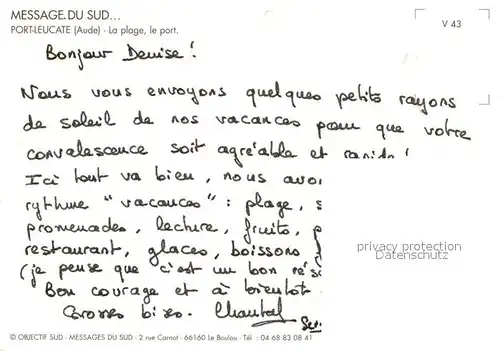 MESSAGE DU SUD...
PORT-LEUCATE (Aude) - La plage, le port.
V 43
Bonjour Denise !
Nous vous envoyons quelques petits rayons
de soleil de nos vacances pour que votre
convalescence soit agréable et rapide !
Ici tout va bien, nous avo
rythme "vacances" : plage, s
promenades, lecture, fruits, p
restaurant, glaces, boissons
(je pense que c'est un bon rés
Bon courage et à bientôt
Grosses bises. Chantal
privacy protection
Datenschutz
© OBJECTIF SUD - MESSAGES DU SUD - 2 rue Carnot - 66160 Le Boulou - Tél : 04 68 83 08 41